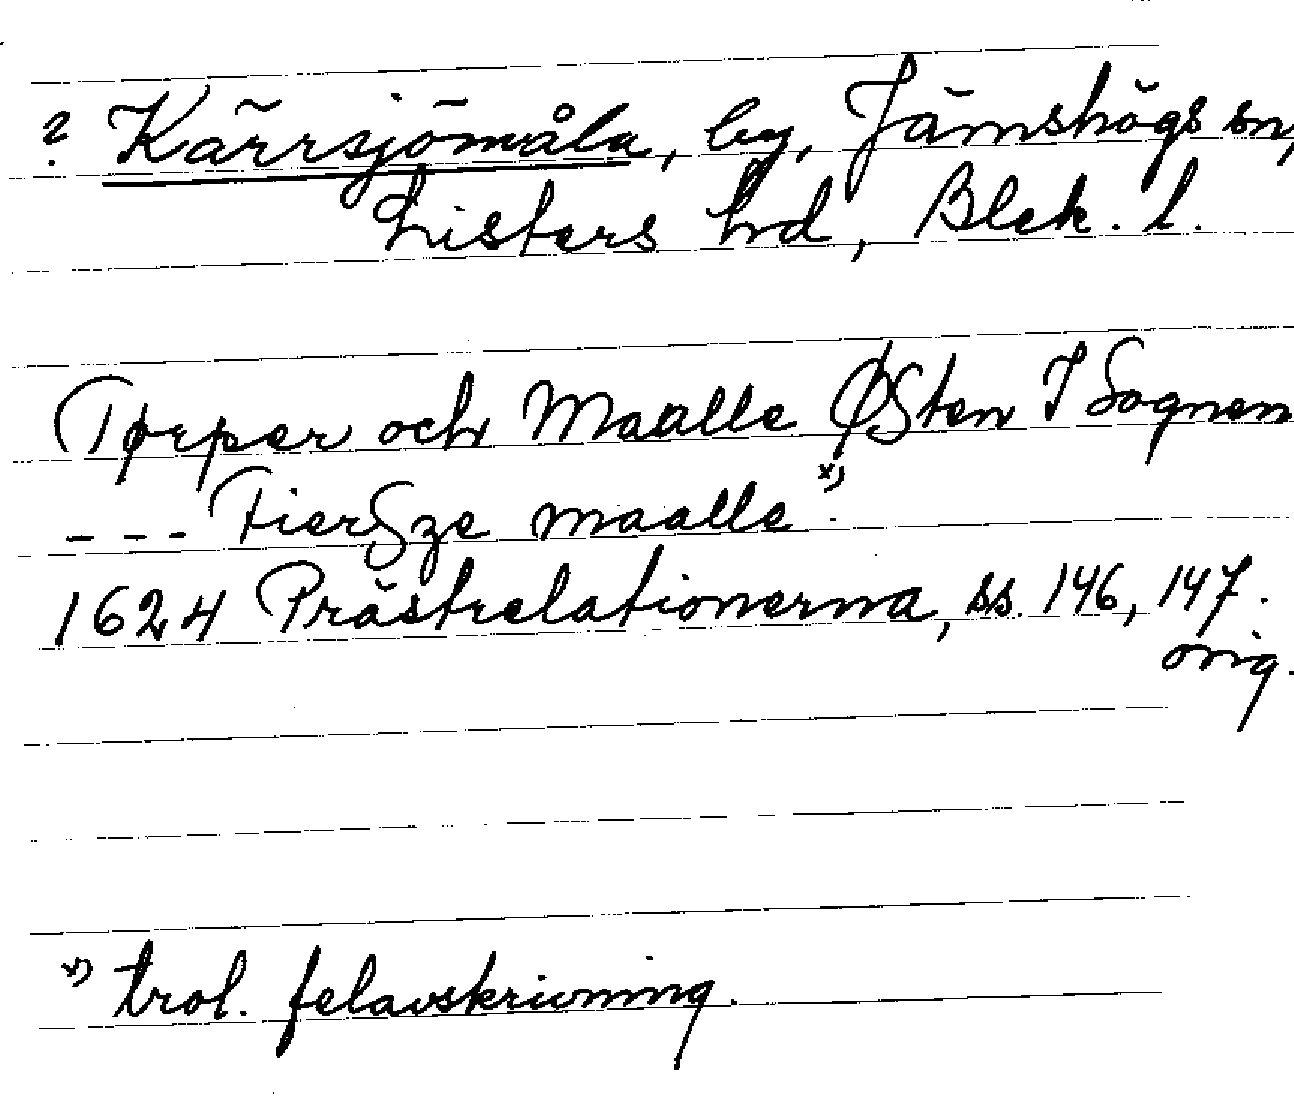 ? Kärrsjömåla, by, Jämshögs sn,
Listers hd, Blek. l.
Tørper och Maalle ØSten I Sognen
--- FierSze maalle x).
1624 Prästrelationerna, ss. 146, 147.
orig.
x) trol. felavskrivning.